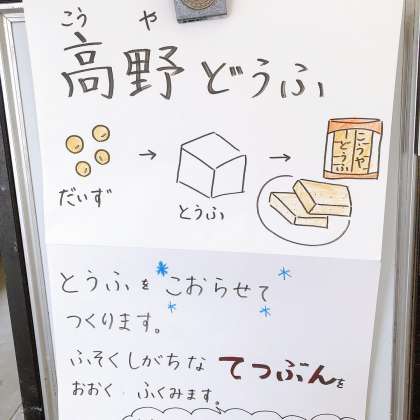 こう や
高野どうふ
だいず
→
とうふ
→
こうや
どうふ
とうふを こおらせて
つくります。
ふそくしがちな てつぶんを
おおく ふくみます。